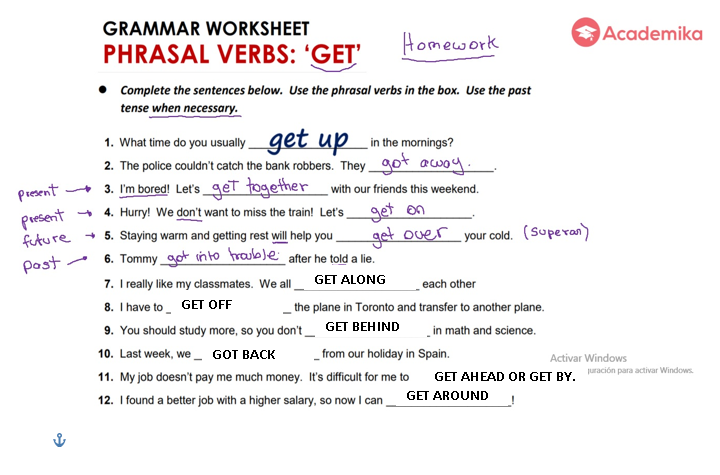 GRAMMAR WORKSHEET
PHRASAL VERBS: ‘GET’
Homework
Academika
● Complete the sentences below. Use the phrasal verbs in the box. Use the past
tense when necessary.
1. What time do you usually get up in the mornings?
2. The police couldn’t catch the bank robbers. They got away.
present 3. I’m bored! Let’s get together with our friends this weekend.
present 4. Hurry! We don’t want to miss the train! Let’s get on.
future 5. Staying warm and getting rest will help you get over your cold. (superar)
past 6. Tommy got into trouble after he told a lie.
7. I really like my classmates. We all GET ALONG each other
8. I have to GET OFF the plane in Toronto and transfer to another plane.
9. You should study more, so you don’t GET BEHIND in math and science.
10. Last week, we GOT BACK from our holiday in Spain.
11. My job doesn’t pay me much money. It’s difficult for me to GET AHEAD OR GET BY.
12. I found a better job with a higher salary, so now I can GET AROUND !
Activar Windows
uración para activar Windows.